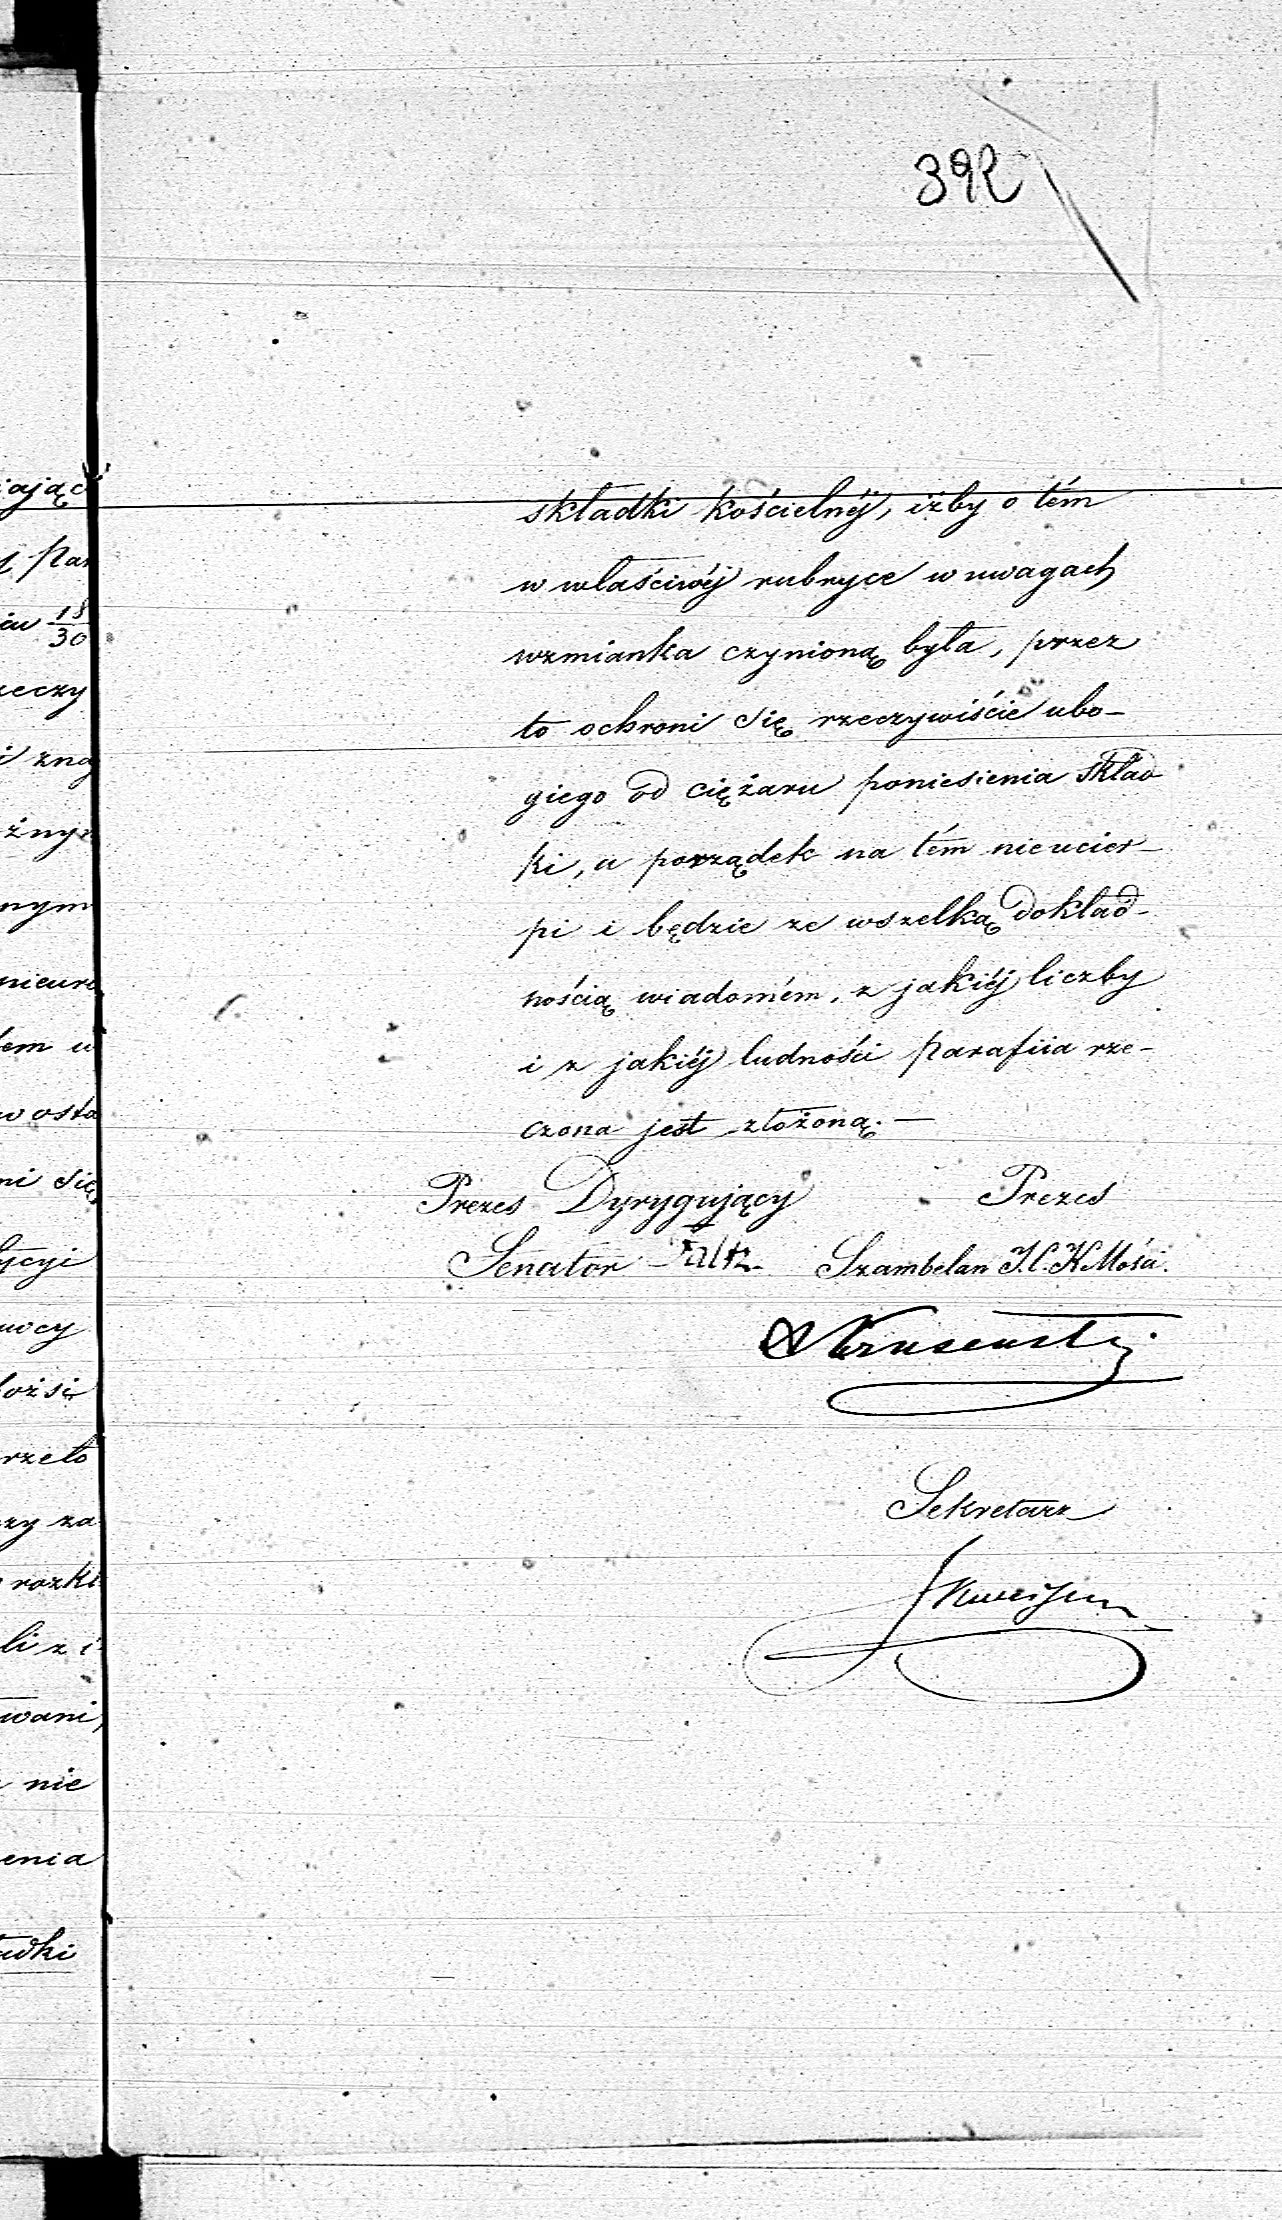 392
składki kościelnéj, iżby o tém
w właściwéj rubryce w uwagach
wzmianka czynioną była, przez
to ochroni się rzeczywiście ubo-
giego od ciężaru poniesienia skład
ki, a porządek na tém nieucier-
pi i będzie ze wszelką dokład-
nością wiadomém, z jakiéj liczby
i z jakiéj ludności parafiia rze-
czona jest złożoną. —
Prezes Dyrygujący
Senator
Prezes
Szambelan J.C.K.Mości.
Sekretarz
iając
par
18
30
eczy
i zna
żnym
nym
nieure
em w
w osta
ni się
ycyi
wcy
łożsi
rzeto
zy za
rozkł
li z i
wani,
nie
enia
adki